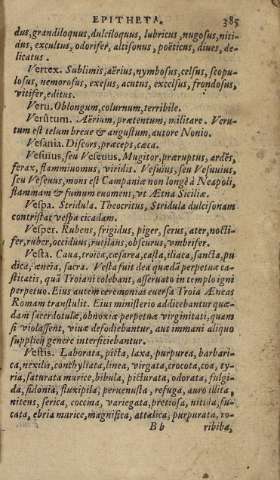 EPITHETA. 385
dus, grandiloquus, dulciloquus, lubricus, nugosus, niti-
dus, excultus, odorifer, altisonus, poëticus, diues, de-
licatus.
Vertex. Sublimis, aërius, nymbosus, celsus, scopu-
losus, nemorosus, exesus, acutus, excelsus, frondosus,
vitifer, editus.
Veru. Oblongum, colurnum, terribile.
Verutum. Aërium, prætentum, militare. Veru-
tum est telum breue & angustum, autore Nonio.
Vesania. Discors, præceps, cæca.
Vesuius, seu Vesenus, Mugitor, præruptus, ardēs,
ferax, flammiuomus, viridis. Vesuius, seu Vesuuius,
seu Veseuus, mons est Campaniæ non longè à Neapoli,
flammam & fumum euomens, vt Ætna Siciliæ.
Vespa. Stridula. Theocritus, Stridula dulcisonam
contristat vespa cicadam.
Vesper. Rubens, frigidus, piger, serus, ater, nocti-
fer, ruber, occiduus, rutilans, obscurus, vmbrifer.
Vesta. Cana, troica, cæsarea, casta, iliaca, sancta, pu-
dica, æneia, sacra. Vesta fuit dea quædā perpetuæ ca-
stitatis, quā Troiani colebant, asseruato in templo igni
perpetuo. Eius autem ceremonias euersa Troia Æneas
Romam transtulit. Eius ministerio addicebantur quæ-
dam sacerdotulæ, obnoxiæ perpetuæ virginitati, quam
si violassent, viuæ defodiebantur, aut immani aliquo
supplicij genere interficiebantur.
Vestis. Laborata, picta, laxa, purpurea, barbari-
ca, nexilis, conchyliata, linea, virgata, crocota, coa, ty-
ria, saturata murice, bibula, picturata, odorata, fulgi-
da, sidonia, fluxipila, peruenusta, refuga, auro illita,
nitens, serica, coccina, variegata, pretiosa, nitida, fu-
cata, ebria murice, magnifica, attalica, purpurata, ro-
B b ribiba,